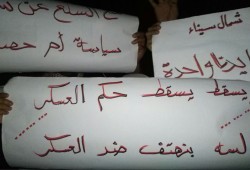 عن
سياسة أم
شمال سيناء
واحدة
يسقط يسقط حكم العسكر
لسه بنهتف ضد العسكر